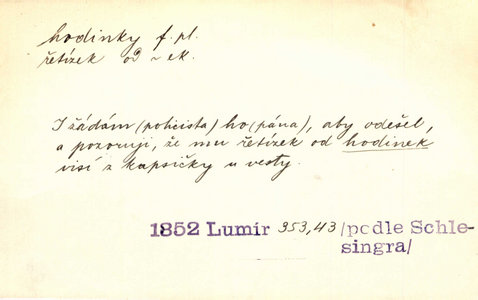 hodinky f. pl.
řetízek od ~ ek.
I žádám (policista) ho (pána), aby odešel,
a pozoruji, že mu řetízek od hodinek
visí z kapsičky u vesty.
1852 Lumír 353,43 /podle Schle-
singra/